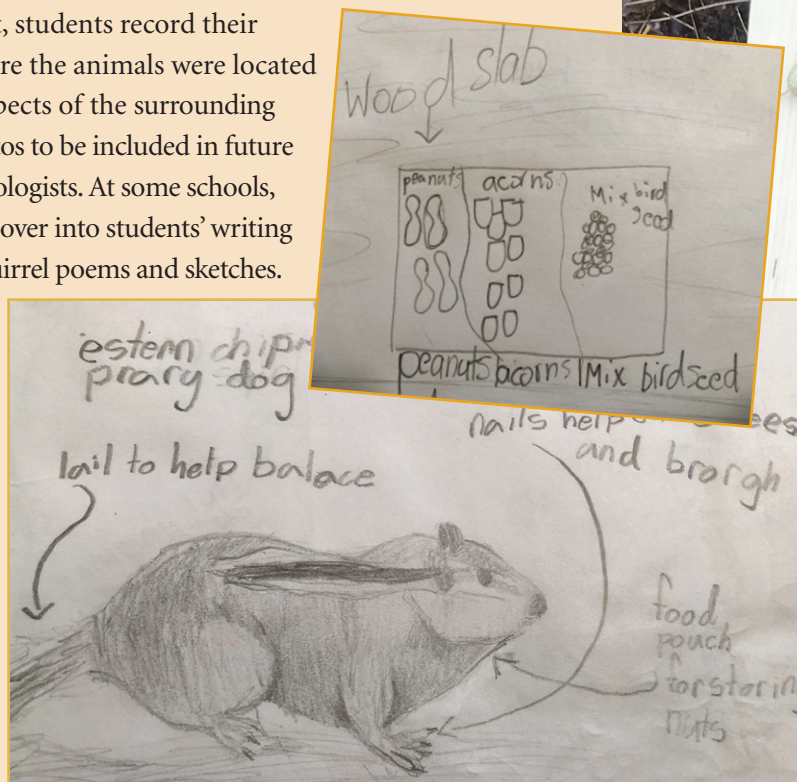 t, students record their
re the animals were located
pects of the surrounding
tos to be included in future
ologists. At some schools,
over into students' writing
uirrel poems and sketches.
Wood slab
peanuts acorns Mix bird
seed
peanuts acorns Mix birdseed
estern chipm
prary dog
nails help ees
and brorgh
tail to help balace
food
pouch
for storin
nuts